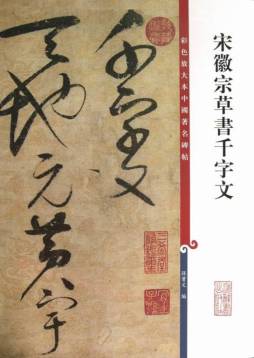 宋徽宗草書千字文
彩色放大本中國著名碑帖
孫寶文 編
千字文
天地元黃宇